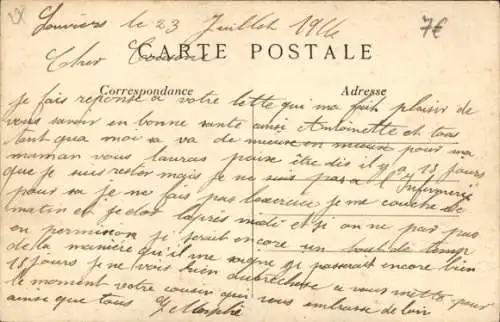 Louviers le 23 Juillet 1914
7€
Cher Cousine
CARTE POSTALE
Correspondance
Adresse
je fais reponse a votre lettre qui ma fait plaisir de
vous savoir en bonne santé ainsi Antoinette et tous
tant qua moi sa va de mieux en mieux pour ma
maman vous lauras peus être dis il y a 13 jours
que je suis mais je ne suis pas a l'Infirmerie
pour sa je ne fais pas je me couche le
matin et je dor lapres midi et si on ne par pas
en permission je serait encore un bout de temp
de la manière qu'il me soigne je passerait encore bien
15 jours je ne vois bien a vous mettre pour
le moment votre cousin qui vous embrasse de loin
ainsi que tous